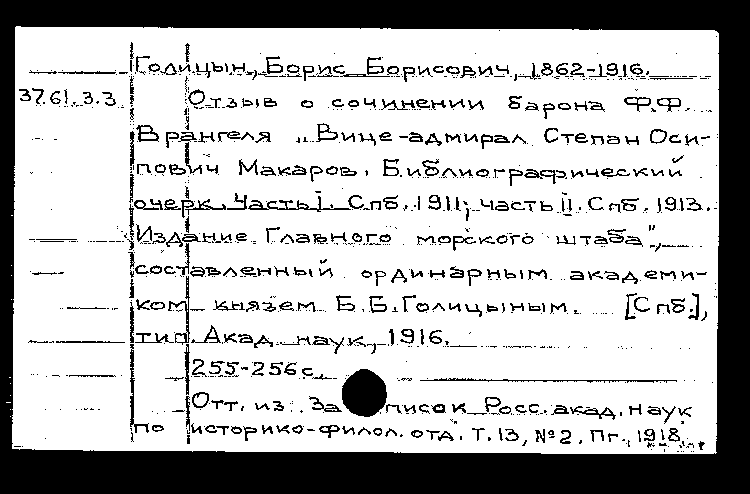 Голицын, Борис Борисович, 1862-1916.
3761.3.3 Отзыв о сочинении барона Ф.Ф.
Врангеля „Вице-адмирал Степан Оси-
пович Макаров. Библиографический
очерк. Часть I. Спб. 1911; часть II. Спб. 1913.
Издание Главного морского штаба",
составленный ординарным академи-
ком князем Б.Б. Голицыным. [Спб.],
тип. Акад. наук, 1916.
255-256 с.
Отт. из: Записок Росс. акад. наук
по историко-филол. отд. Т. 13, №2. Пг., 1918.